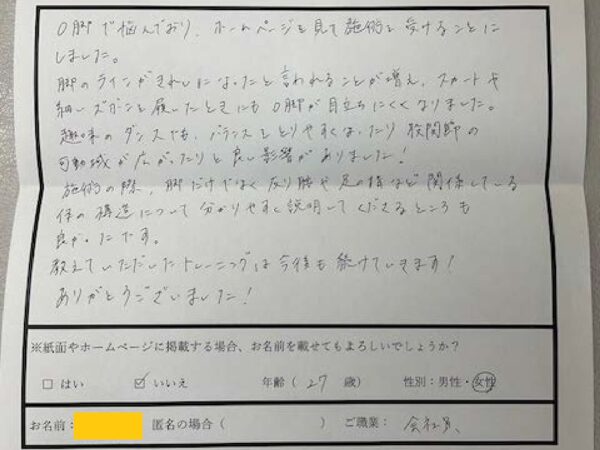 O脚で悩んでおり、ホームページを見て施術を受けることに
しました。
脚のラインがきれいになったと言われることが増え、スカートや
細いズボンを履いたときにもO脚が目立ちにくくなりました。
趣味のダンスでも、バランスをとりやすくなったり股関節の
可動域が広がったりと良い影響がありました!
施術の際、脚だけでなく反り腰や足の指など関係している
体の構造について分かりやすく説明してくださるところも
良かったです。
教えていただいたトレーニングは今後も続けていきます!
ありがとうございました!
※紙面やホームページに掲載する場合、お名前を載せてもよろしいでしょうか?
□ はい ☑ いいえ 年齢 ( 27 歳) 性別:男性・女性
お名前: 匿名の場合 ( ) ご職業: 会社員、